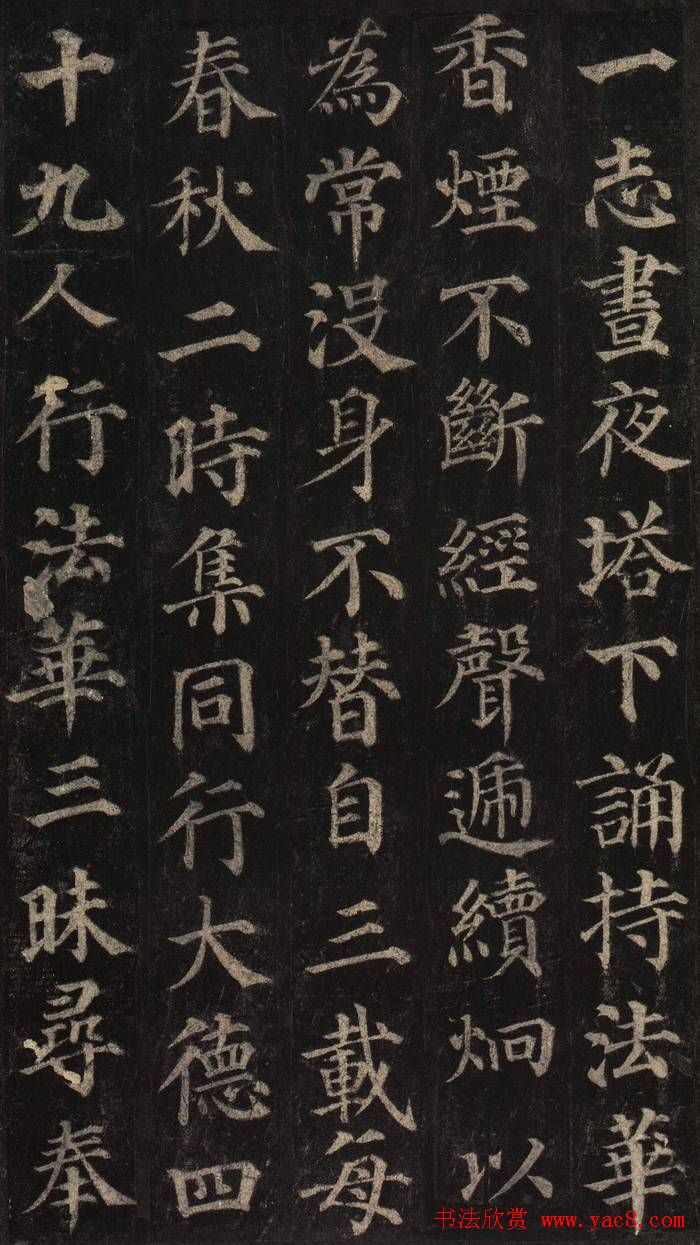 一志晝夜塔下誦持法華
香煙不斷經聲遞續烱以
為常沒身不替自三載每
春秋二時集同行大德四
十九人行法華三昧尋奉
书法欣赏 www.yac8.com